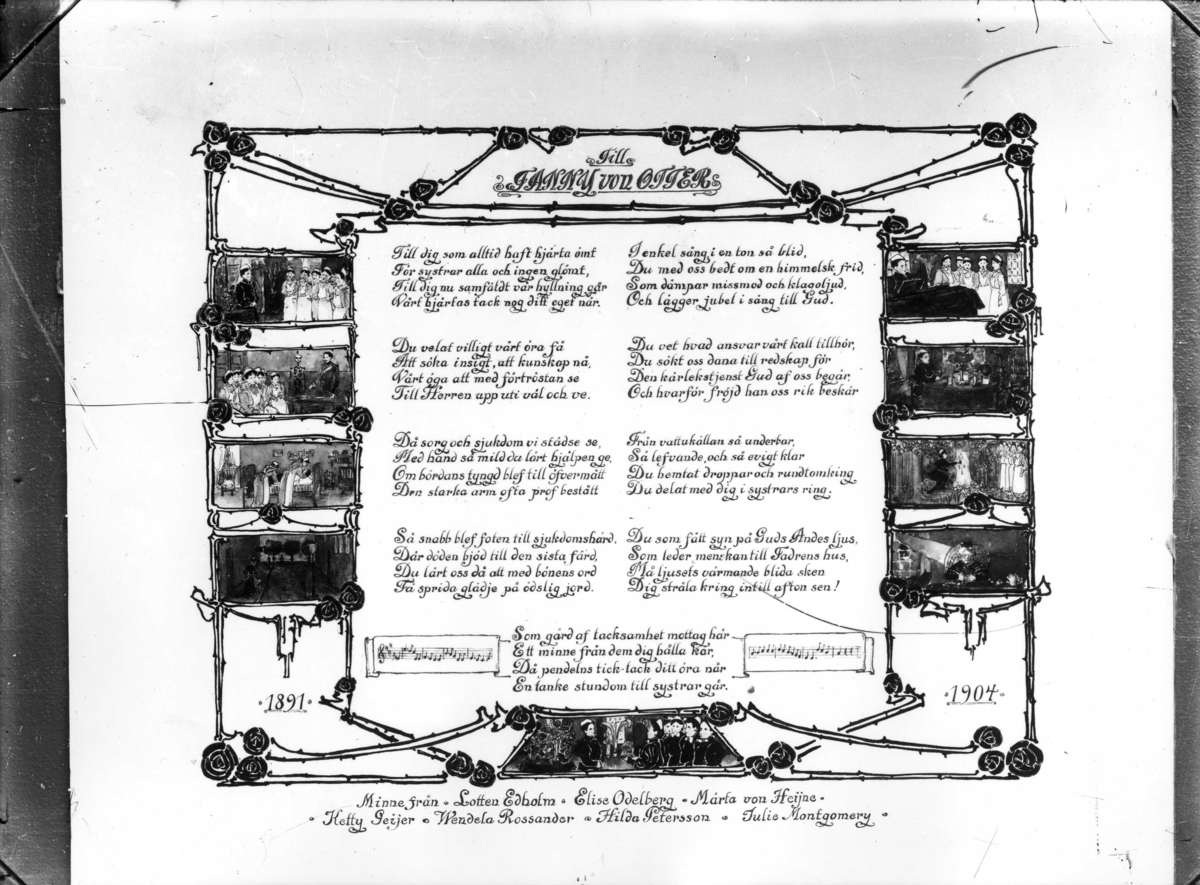 Till
FANNY von OTTER
Till dig som alltid haft hjärta ömt
För systrar alla och ingen glömt,
Till dig nu samfäldt vår hyllning går
Vårt hjärtas tack nog ditt eget når.
Du velat villigt vårt öra få
Att söka insigt, att kunskap nå,
Vårt öga att med förtröstan se
Till Herren upp uti väl och ve.
Då sorg och sjukdom vi städse se,
Med hand så mild du lärt hjälpen ge,
Om bördans tyngd blef till öfvermått
Den starka arm ofta prof bestått
Så snabb blef foten till sjukdomshärd,
Där döden bjöd till den sista färd,
Du lärt oss då att med bönens ord
Få sprida glädje på ödslig jord.
I enkel sång i en ton så blid,
Du med oss bedt om en himmelsk frid,
Som dämpar missmod och klagoljud,
Och lägger jubel i sång till Gud.
Du vet hvad ansvar vårt kall tillhör,
Du sökt oss dana till redskap för
Den kärlekstjenst Gud af oss begär,
Och hvarför fröjd han oss rik beskär
Från vattukällan så underbar,
Så lefvande, och så evigt klar
Du hemtat droppar och rundtomkring
Du delat med dig i systrars ring.
Du som fått syn på Guds Andes ljus,
Som leder menskan till Fadrens hus,
Må ljusets värmande blida sken
Dig stråla kring intill afton sen!
Som gärd af tacksamhet mottag här
Ett minne från dem dig hålla kär,
Då pendelns tick-tack ditt öra når
En tanke stundom till systrar går.
1891
1904
Minne från Lotten Edholm Elise Odelberg Märta von Heijne
Hetty Geijer Wendela Rossander Hilda Petersson Julie Montgomery